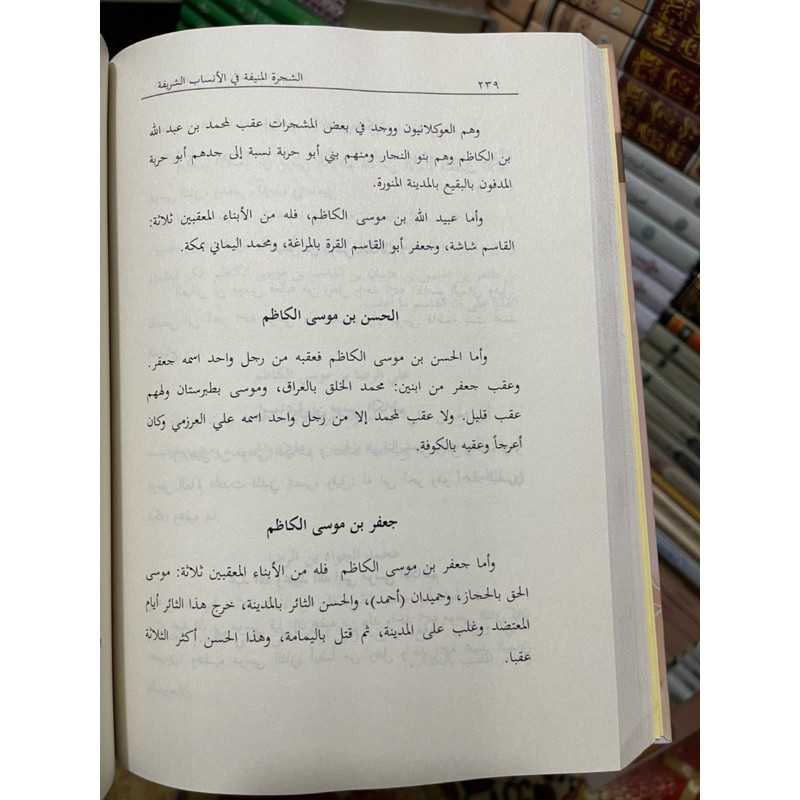 الشجرة المنيفة في الأنساب الشريفة
٢٣٩
وهم العوكلانيون ووجد في بعض المشجرات عقب لمحمد بن عبد الله
بن الكاظم وهم بنو النجار ومنهم بني أبو حربة نسبة إلى جدهم أبو حربة
المدفون بالبقيع بالمدينة المنورة.
وأما عبيد الله بن موسى الكاظم، فله من الأبناء المعقبين ثلاثة:
القاسم شاشة، وجعفر أبو القاسم القرة بالمراغة، ومحمد اليماني بمكة.
الحسن بن موسى الكاظم
وأما الحسن بن موسى الكاظم فعقبه من رجل واحد اسمه جعفر.
وعقب جعفر من ابنين: محمد الخلق بالعراق، وموسى بطبرستان ولهم
عقب قليل. ولا عقب لمحمد إلا من رجل واحد اسمه علي العرزمي وكان
أعرجاً وعقبه بالكوفة.
جعفر بن موسى الكاظم
وأما جعفر بن موسى الكاظم فله من الأبناء المعقبين ثلاثة: موسى
الحق بالحجاز، وحميدان (أحمد)، والحسن الثائر بالمدينة، خرج هذا الثائر أيام
المعتضد وغلب على المدينة، ثم قتل باليمامة، وهذا الحسن أكثر الثلاثة
عقبا.